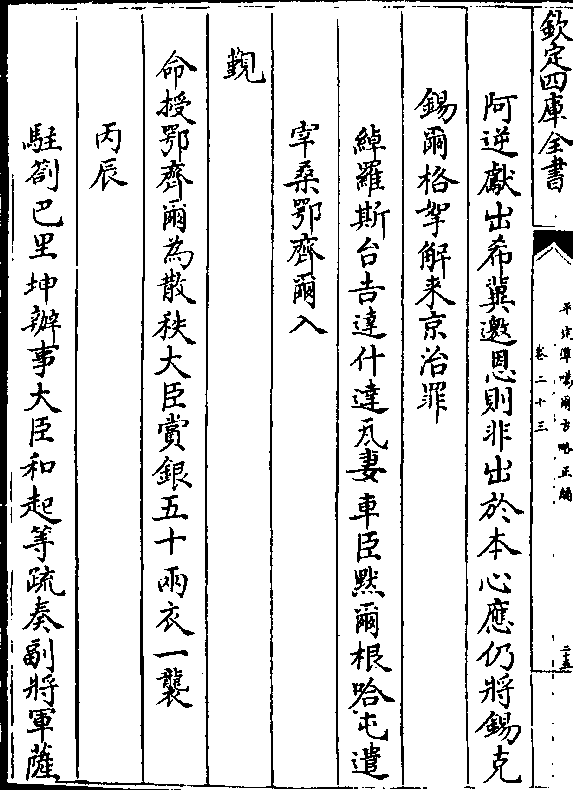 欽定四庫全書
平定準噶爾方略正編
卷二十三
二十五
阿逆獻出希冀邀恩則非出於本心應仍將錫克
錫爾格拏解来京治罪
綽羅斯台吉達什達瓦妻車臣黙爾根哈屯遣
宰桑鄂齊爾入
覲
命授鄂齊爾為散秩大臣賞銀五十兩衣一襲
丙辰
駐劄巴里坤辦事大臣和起等疏奏副將軍薩